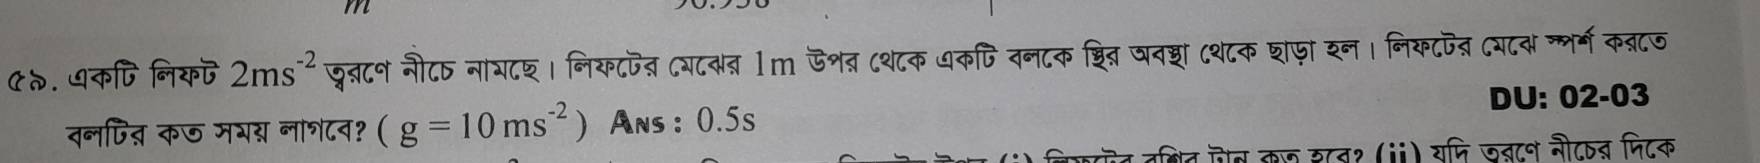 m
৫৯. একটি লিফট 2ms⁻² ত্বরণে নীচে নামছে। লিফটের মেঝের 1m উপর থেকে একটি বলকে স্থির অবস্থা থেকে ছাড়া হল। লিফটের মেঝে স্পর্শ করতে
বলটির কত সময় লাগবে? ( g = 10 ms⁻² ) ANS : 0.5s DU: 02-03
কত হবে? (ii) যদি ত্বরণে নীচের দিকে